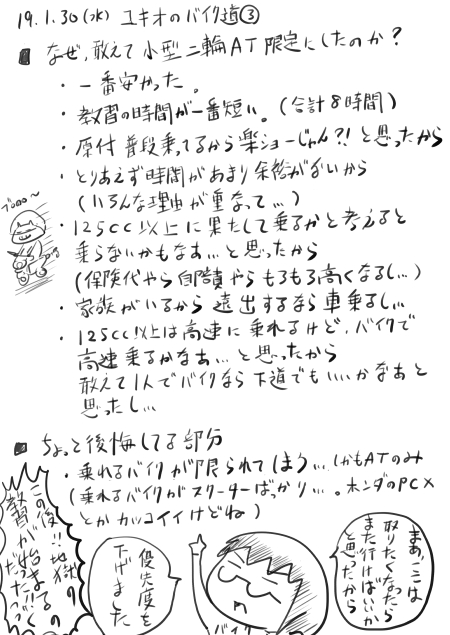 19.1.30(水) ユキオのバイク道③
■ なぜ、敢えて小型二輪AT限定にしたのか?
・一番安かった。
・教習の時間が一番短い。(合計8時間)
・原付普段乗ってるから楽ショーじゃん?!と思ったから
・とりあえず時間があまり余裕がないから
(いろんな理由が重なって…)
・125cc以上に果たして乗るかと考えると
乗らないかもなあ…と思ったから
(保険代やら自賠責やらもろもろ高くなるし…)
・家族がいるから遠出するなら車乗るし…
・125cc以上は高速に乗れるけど、バイクで
高速乗るかなあ…と思ったから
敢えて1人でバイクなら下道でもいいかなあと
思ったし…
ブロロロ〜
■ ちょっと後悔してる部分
・乗れるバイクが限られてしまう…しかもATのみ
(乗れるバイクがスクーターばっかり…。ホンダのPCX
とかカッコイイけどね)
まあ、ここは
取りたくなったら
また行けばいいか
と思ったから
優先度を
下げました
この後!!地獄の
教習が始まるの
だったっ!!
バイク